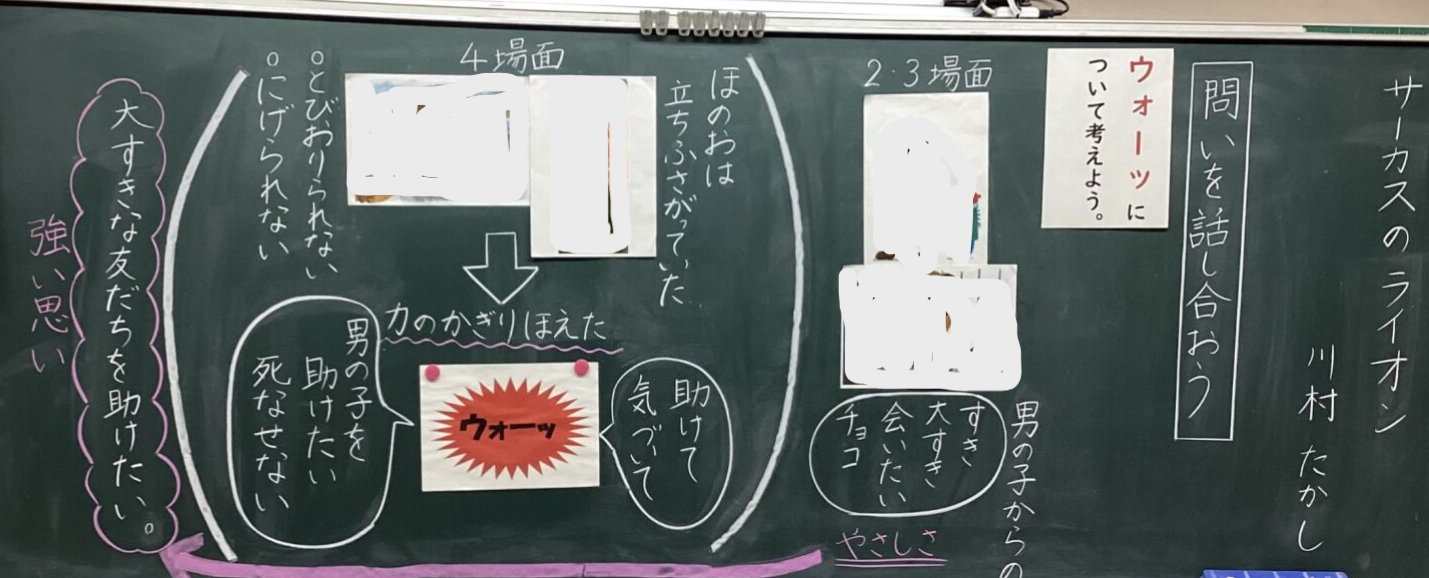 サーカスのライオン
川村 たかし
問いを話し合おう
ウォーッに
ついて考えよう。
2・3場面
男の子からの
すき
大すき
会いたい
チョコ
やさしさ
ほのおは
立ちふさがっていた
4場面
力のかぎりほえた
助けて
気づいて
ウォーッ
男の子を
助けたい
死なせない
○とびおりられない
○にげられない
大すきな友だちを助けたい。
強い思い